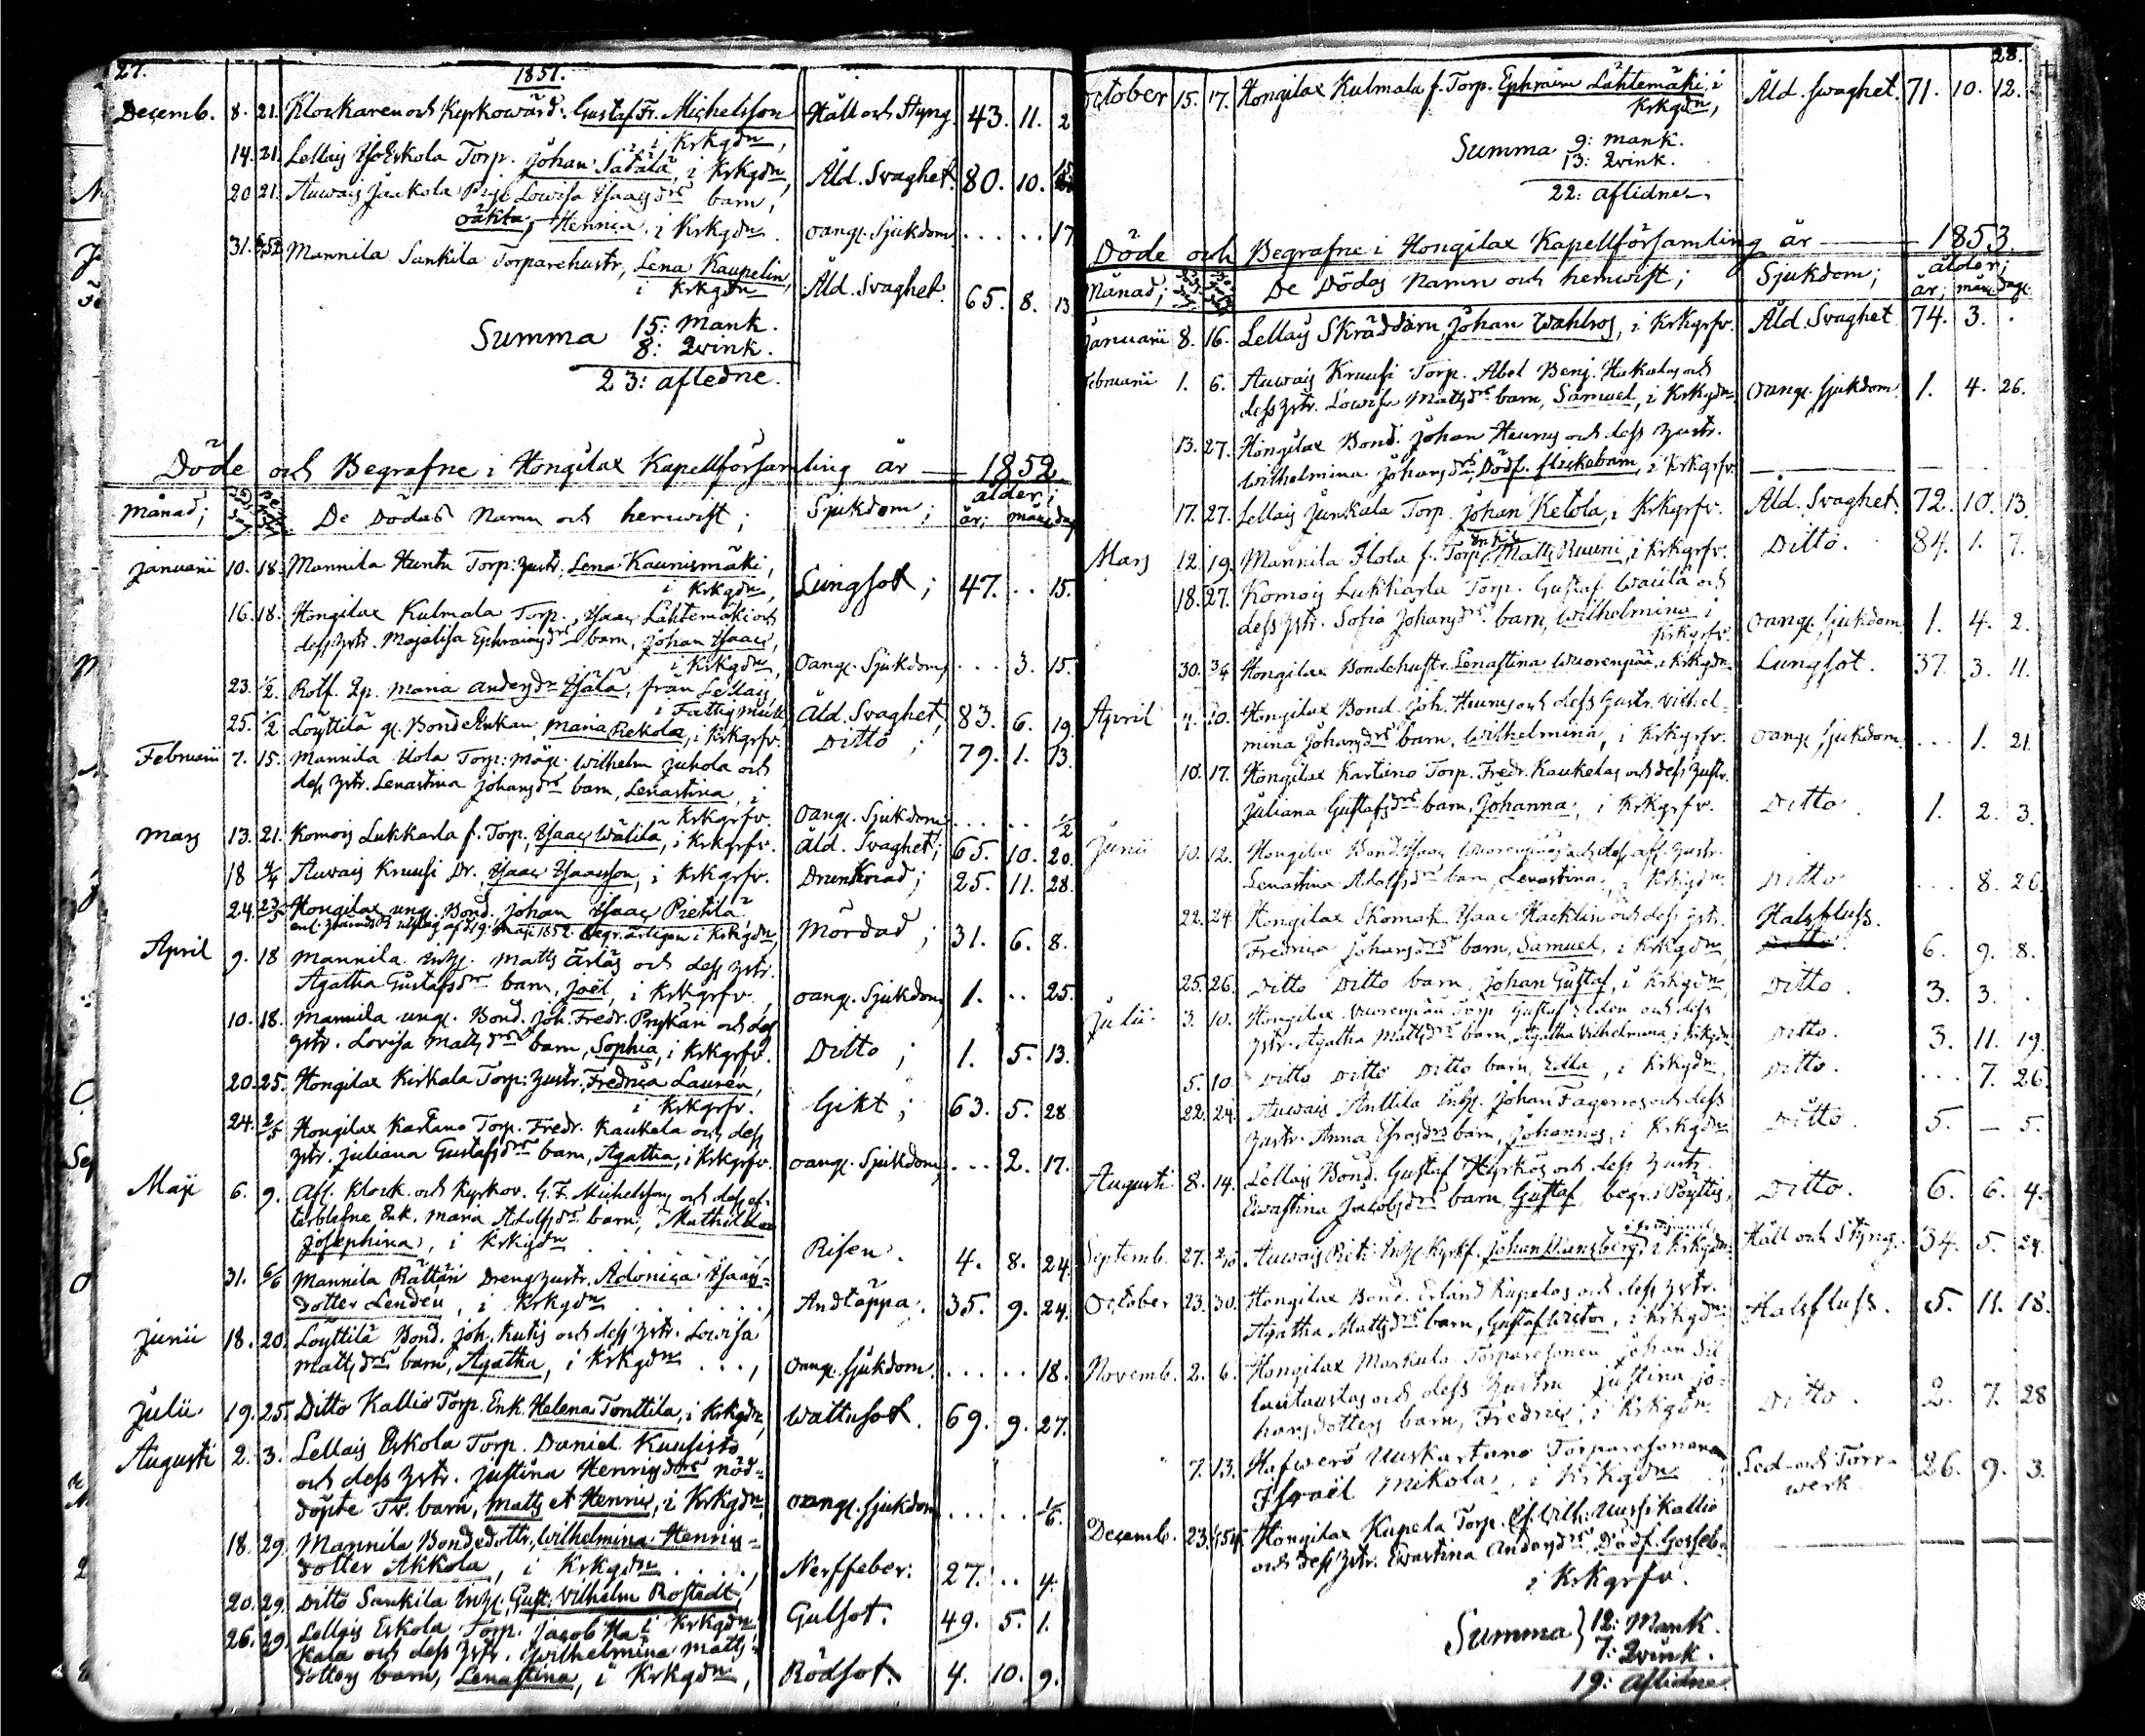 27.
1851.
Decemb. 8. 21. Klockaren och Kyrkowärd. Gustaf Fr. Michelsson Håll och Styng. 43. 11. 2
i Krkgdn,
14. 21. Lellais Eskola Torp. Johan Satala, i Krkgdn, Åld. Svaghet. 80. 10.
20 21. Auwais Jaakola Pig. Lowisa Isaacsdrs barn,
oäkta, Henrica, i Krkgdn. oang. Sjukdom . . . . . 17
31. Mannila Sankila Torparehustr, Lena Kaupelin,
i Krkgdn Åld. Svaghet. 65. 8. 13
Summa 15: Mank.
8: Qvink.
23: afledne.
Döde och Begrafne i Hongilax Kapellförsamling år — 1852
ålder;
Månad; De Dödas Namn och hemwist; Sjukdom; år; mån. dag
Januarii 10. 18. Mannila Huntu Torp: hustr. Lena Kaunismäki,
i Krkgdn, Lungsot; 47. . . 15.
16. 18. Hongilax Kulmala Torp., Isaac Lähtemäki och
dess hstr. Majalisa Ephraimsdrs barn, Johan Isaac,
i Krkgdn, Oang. Sjukdom, . . . 3. 15.
23. ½ Rotf. Qp. Maria Andersdr Isälä, från Lellais,
Åld. Svaghet, 83. 6. 19
25. ½ Löyttilä gl. BondeEnkan Maria Pekola, i Krkgrfv. Ditto; 79. 1. 13.
Februarii 7. 15. Mannila Uola Torp: måg: Wilhelm Jukola och
dess hstr. Lenastina Johansdrs barn, Lenastina, i
Krkgrfv. Oang. Sjukdom . . . . . ½
Mars 13. 21. Komois Lukkarla f. Torp. Isaac Wälilä, i Krkgrfv. Åld. Svaghet; 65. 10. 20.
18 4/4 Auwais Kruusi Dr. Isaac Isaacsson, i Krkgrfv. Drunknad; 25. 11. 28.
24. 23/5 Hongilax ung. Bond. Johan Isaac Pietilä
enl. utslag af d. 19 Maji 1852. begr. ärligen i Krkgdn, Mördad; 31. 6. 8.
April 9. 18 Mannila Inh. Matts Ärläs och dess hstr.
Agatha Gustafsdrs barn, Joël, i Krkgrfv. oang. Sjukdom, 1. . . 25.
10. 18. Mannila ung. Bond. Joh. Fredr. Prykäri och dess
hstr. Lovisa Mattsdrs barn, Sophia, i Krkgrfv. Ditto; 1. 5. 13.
20. 25. Hongilax Kirkala Torp: hustr. Fredrica Lauren,
i Krkgrfv. Gikt; 63. 5. 28
24. 2/5 Hongilax Kartano Torp. Fredr. Kaukela och dess
hstr. Juliana Gustafsdrs barn, Agatha, i Krkgrfv. oang. Sjukdom, . . . 2. 17.
Maji 6. 9. Afl. Klock. och Kyrkov. G. F. Michelssons och dess ef-
terblefne Enk. Maria Adolfsdrs barn, Mathilda
Josephina, i Krkgdn Risen. 4. 8. 24.
31. 6/6 Mannila Rättäri Drengshustr. Adonica Isaacs-
dotter Lendén, i Krkgdn . . . . . . , Andtäppa. 35. 9. 24.
Junii 18. 20. Löyttilä Bond. Joh. Kutis och dess hstr. Lowisa
Mattsdrs barn, Agatha, i Krkgdn . . . , Oang. Sjukdom . . . . . 18.
Julii 19. 25. Ditto Kallio Torp. Enk. Helena Tonttila, i Krkgdn, Wattusot. 69. 9. 27.
Augusti 2. 3. Lellais Eskola Torp. Daniel Kuusisto
och dess hstr. Justina Henricsdrs nöd-
döpte Tv. barn, Matts et Henric, i Krkgdn, oang. sjukdom . . . . . 1/6.
18. 29. Mannila Bondedottr. Wilhelmina Henrics-
dotter Akkola, i Krkgdn . . . . , Nerffeber: 27. . . 4.
20. 29. Ditto Sankila Inh. Gust. Wilhelm Rostedt,
i Krkgdn Gulsot. 49. 5. 1.
26. 29. Lellais Eskola Torp. Jacob Ha-
kala och dess hstr. Wilhelmina Matts-
dotters barn, Lenastina, i Krkgdn, Rödsot. 4. 10. 9.
28.
October 15. 17. Hongilax Kulmala f. Torp. Ephraim Lähtemäki, i
Krkgdn, Åld. Swaghet. 71. 10. 12.
Summa 9: Mank.
13: Qvink.
22: aflidne
Döde och Begrafne i Hongilax Kapellförsamling år — 1853
ålder;
Månad; De Dödas Namn och hemwist; Sjukdom; år; mån. dag.
Januarii 8. 16. Lellais Skräddarn Johan Wahlros, i Krkgrfv. Åld. Svaghet 74. 3. .
Februarii 1. 6. Auwais Kruusi Torp. Abel Benj. Hakalas och
dess hstr. Lowisa Mattsdrs barn, Samuel, i Krkgdn. oang. sjukdom. 1. 4. 26.
13. 27. Hongilax Bond. Johan Heurus och dess hustr.
Wilhelmina Johansdrs Dödf. flickebarn, i Krkgrfv.
17. 27. Lellais Junkala Torp. Johan Ketola, i Krkgrfv. Åld. Svaghet. 72. 10. 13.
Mars 12. 19. Mannila Flola f. Torp. Matts Ruuni, i Krkgrfv. Ditto. 84. 1. 7.
18. 27. Komois Lukkarla Torp. Gustaf Waulä och
dess hstr. Sofia Johansdrs barn, Wilhelmina i
Krkgrfv. oang. sjukdom. 1. 4. 2.
30. 3/4 Hongilax Bondehustr. Lenastina Wuorenpää, i Krkgdn. Lungsot. 37. 3. 11.
April 4. 10. Hongilax Bond. Joh. Heurus och dess hustr. Vilhel-
mina Johansdrs barn, Wilhelmina, i Krkgrfv. oang. sjukdom. . . . 1. 21.
10. 17. Hongilax Kartano Torp. Fredr. Kaukelas och dess hustr.
Juliana Gustafsdrs barn, Johanna, i Krkgrfv. Ditto. 1. 2. 3.
Junii 10. 12. Hongilax Bond. Isaac Wuorenpääs och dess afl. hustr.
Lenastina Adolfsdrs barn, Lenastina, i Krkgdn. Ditto . . . 8. 26.
22. 24 Hongilax Skomak. Isaac Hacklin och dess hstr. Halsfluss.
Fredrica Johansdrs barn, Samuel, i Krkgdn, 6. 9. 8.
25. 26. Ditto Ditto barn, Johan Gustaf, i Krkgdn, Ditto. 3. 3. .
Julii 3. 10. Hongilax Wuorenpää Torp. Gustaf Elden och dess
hstr. Agatha Mattsdrs barn, Agatha Vilhelmina, i Krkgdn. Ditto. 3. 11. 19.
5. 10. Ditto Ditto Ditto barn, Edla, i Krkgdn, Ditto. . . . 7. 26.
22. 24. Auwais Anttila Inh. Johan Fagerros och dess
hustr. Anna Esrasdrs barn, Johannes, i Krkgdn Ditto. 5. — 5.
Augusti 8. 14. Lellais Bond. Gustaf Hyrkös och dess hustr.
Ewastina Jacobsdrs barn, Gustaf, begr. i Pöyttis, Ditto. 6. 6. 4.
Septemb. 27. 2/10 Auwais Piti Inh. Kyrkf. Johan Mansberg, i Krkgdn. Håll och Styng. 34. 5. 24.
October 23. 30. Hongilax Bond. Erland Kupelas och dess hstr.
Agatha Mattsdrs barn, Gustaf Wictor, i Krkgdn. Halsfluss. 5. 11. 18.
Novemb. 2. 6. Hongilax Markula Torparesonen Johan Sil-
lantaustas och dess hustru Justina Jo-
hansdotters barn, Fredric, i Krkgdn Ditto. 2. 7. 28
7. 13. Hafwerö Uuskartano Torparesonen
Israël Mikola, i Krkgdn Led- och Torr-
werk. 26. 9. 3.
Decemb. 23. Hongilax Kupela Torp. Vilh. Uussikallio
och dess hstr. Ewastina Andersdrs Dödf. Gosseb.
i Krkgrfv.
Summa 12: Mank.
7: Qvink.
19: Aflidne.